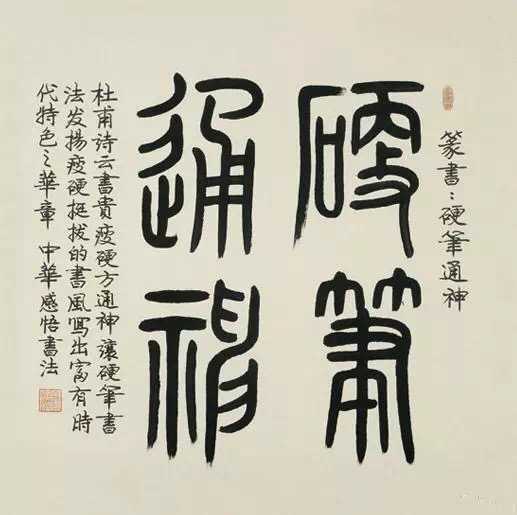 篆書：硬筆通神
硬筆
通神
杜甫詩云書貴瘦硬方通神讓硬筆書
法发揚瘦硬挺拔的書風寫出富有時
代特色之華章 中華感悟書法